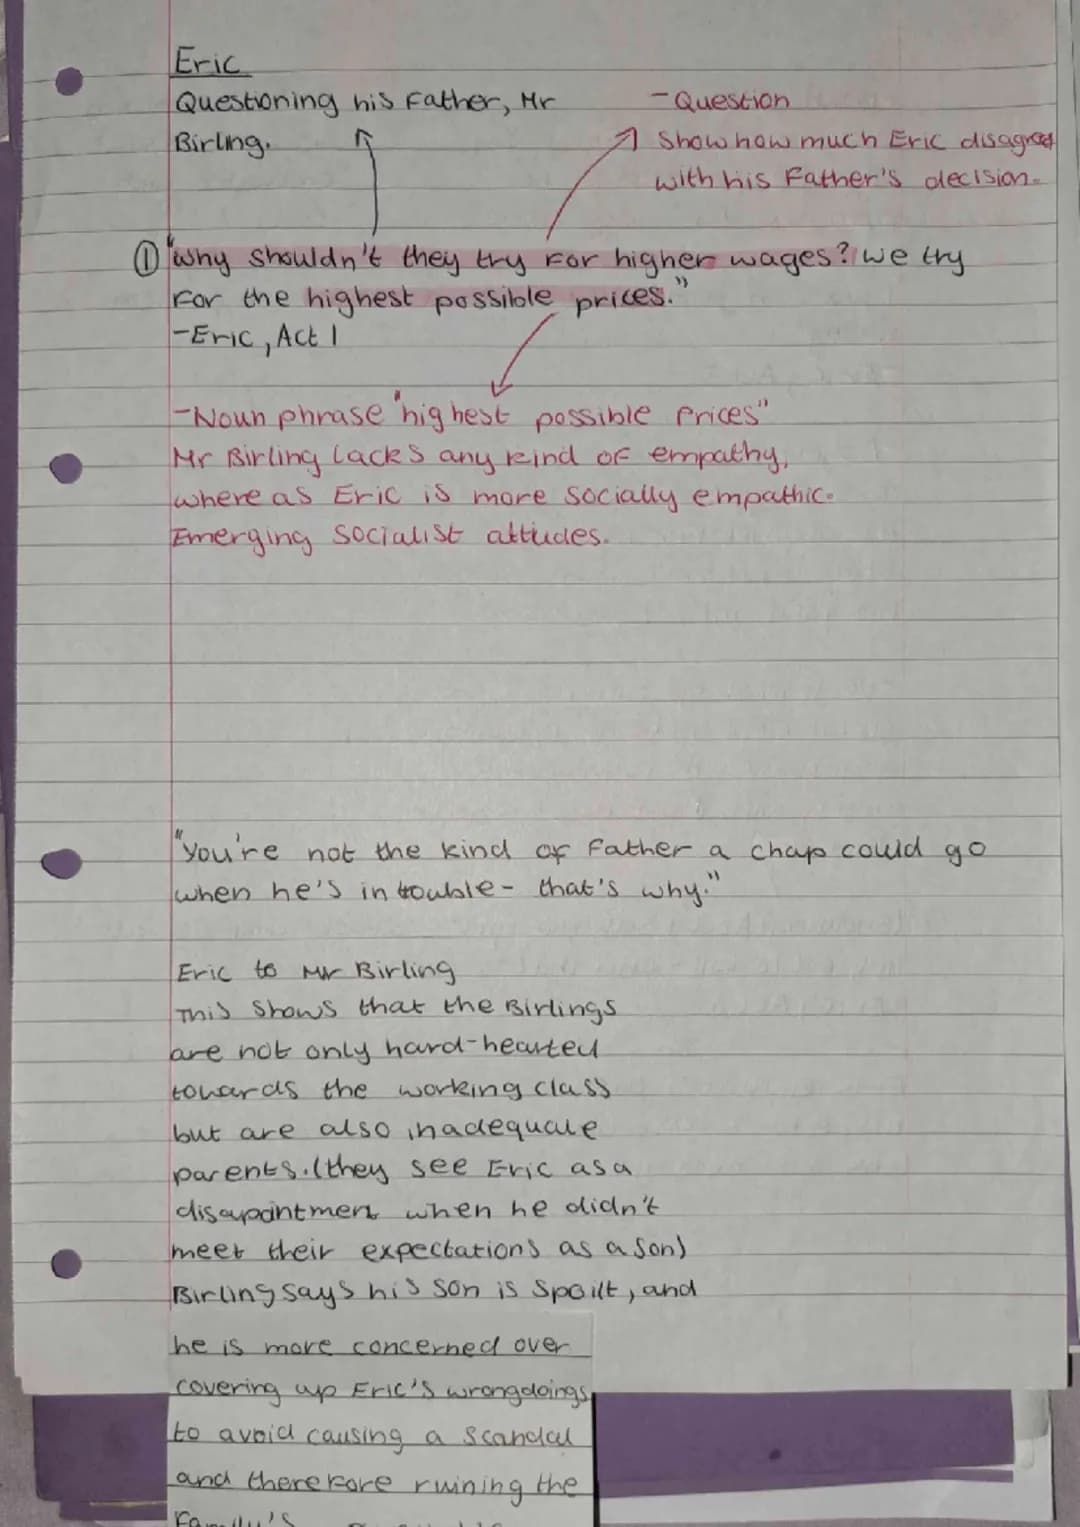 Eric
Questioning his Father, Mr
Birling.
- Question
Show how much Eric disagrees
with his Father's decision.
① "Why shouldn't they try For higher wages? We try
For the highest possible prices."
- Eric, Act 1
- Noun phrase "highest possible Prices"
Mr Birling lacks any kind of empathy,
where as Eric is more socially empathic.
Emerging socialist attudes.
"You're not the kind of Father a chap could go
when he's in touble - that's why."
Eric to Mr Birling
This shows that the Birlings
are not only hard-hearted
towards the working class
but are also inadequate
parents. (they see Eric as a
disapointment when he didn't
meet their expectations as a son)
Birling says his son is spoilt, and
he is more concerned over
covering up Eric's wrongdoings
to avoid causing a scandal
and therefore ruining the
Family's